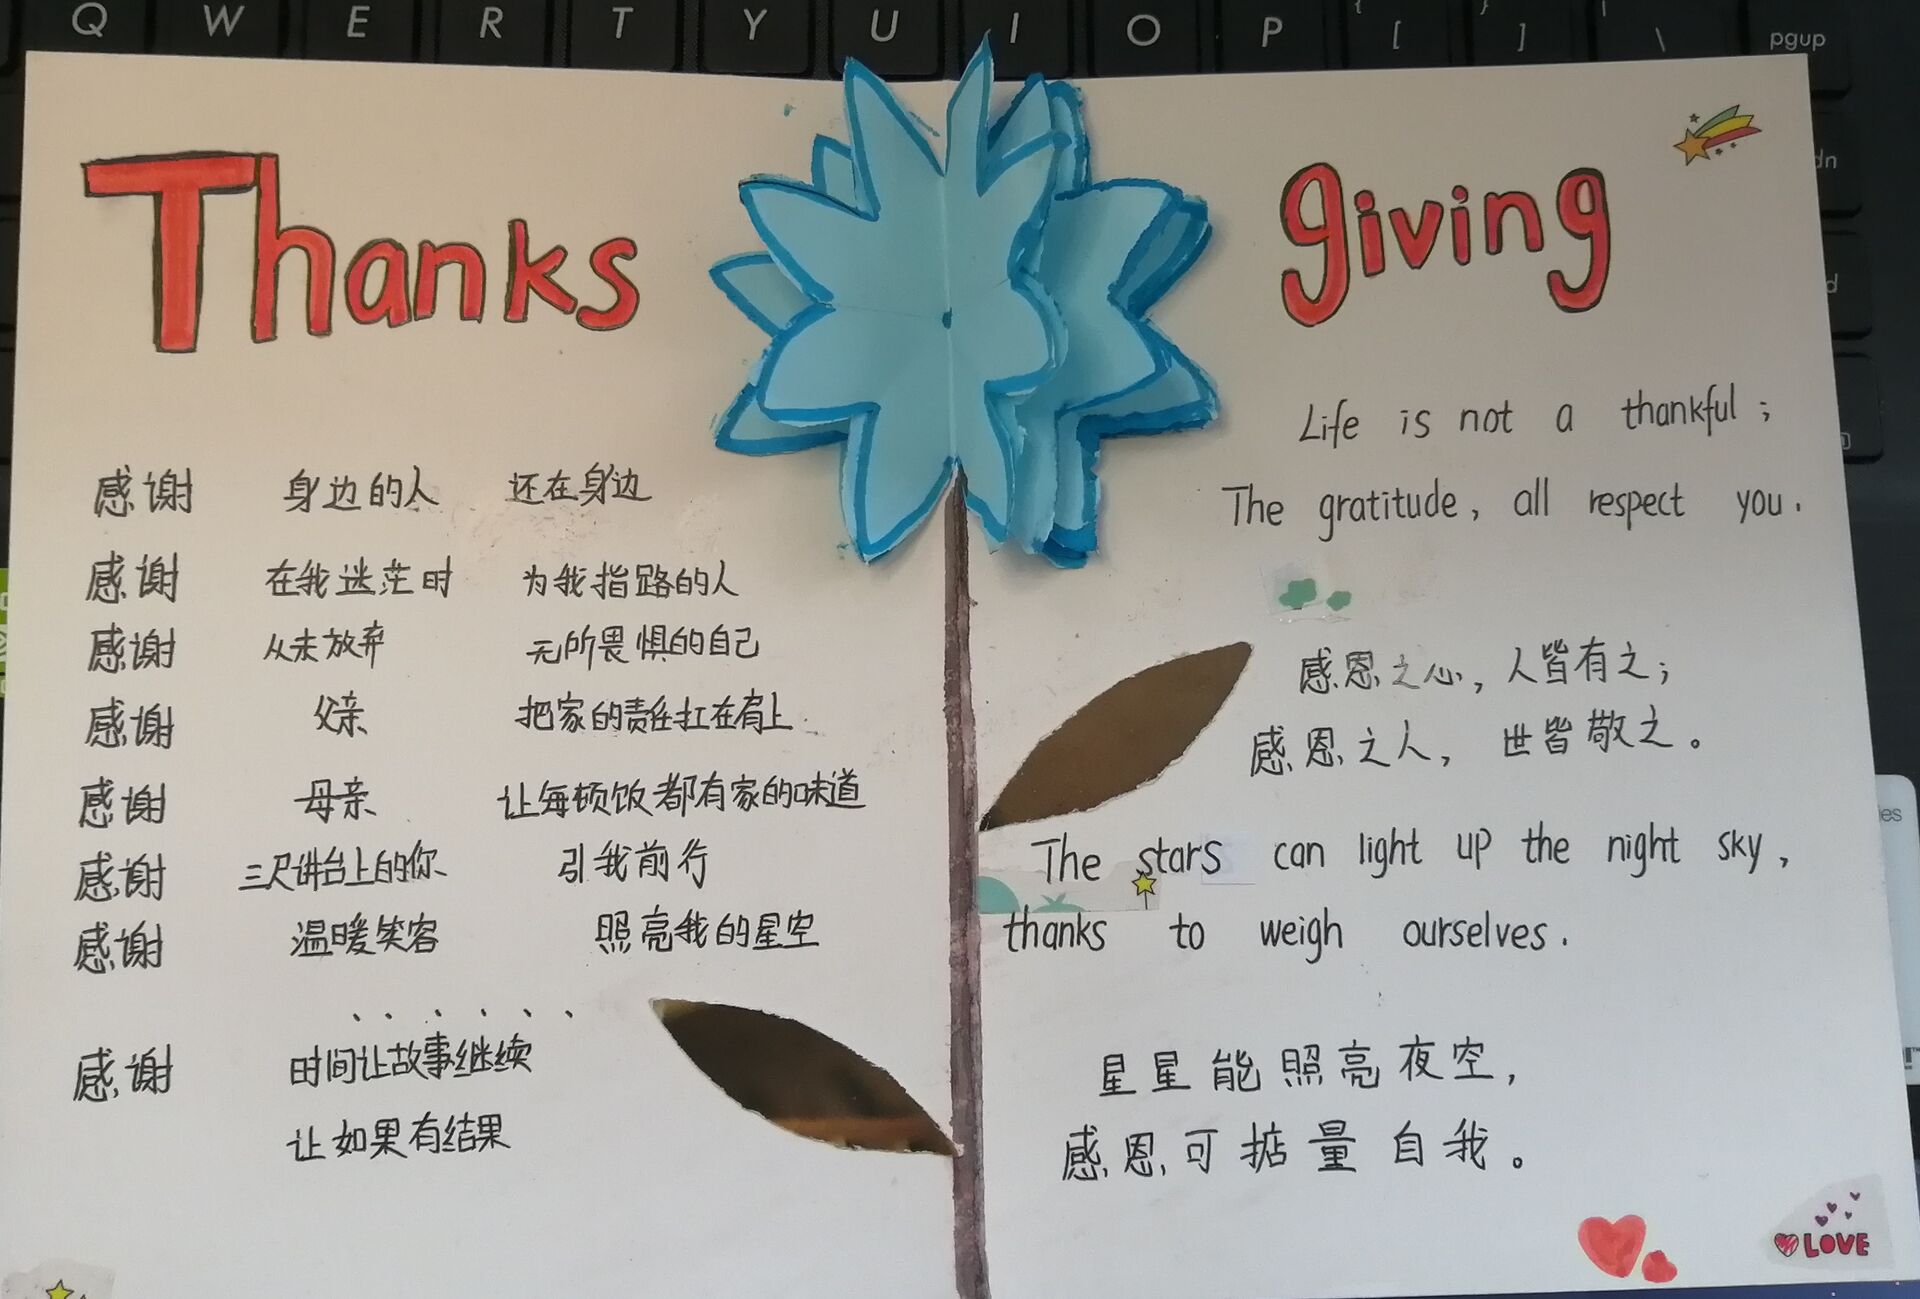 Q W E R T Y U I O P { [ } ] | \ pgup
Thanks giving
感谢 身边的人 还在身边
感谢 在我迷茫时 为我指路的人
感谢 从未放弃 无所畏惧的自己
感谢 父亲 把家的责任扛在肩上
感谢 母亲 让每顿饭都有家的味道
感谢 三尺讲台上的你 引我前行
感谢 温暖笑容 照亮我的星空
、、、、、、
感谢 时间让故事继续
让如果有结果
Life is not a thankful;
The gratitude, all respect you.
感恩之心,人皆有之;
感恩之人, 世皆敬之。
The stars can light up the night sky,
thanks to weigh ourselves.
星星能照亮夜空,
感恩可掂量自我。
LOVE